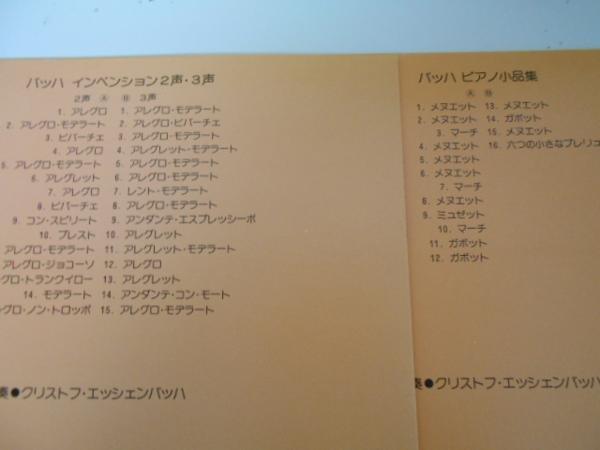 バッハ インベンション2声・3声
2声 Ⓐ Ⓑ 3声
1. アレグロ 1. アレグロ・モデラート
2. アレグロ・モデラート 2. アレグロ・ビバーチェ
3. ビバーチェ 3. アレグロ・モデラート
4. アレグロ 4. アレグレット・モデラート
5. アレグロ・モデラート 5. アレグロ・モデラート
6. アレグレット 6. アレグロ・モデラート
7. アレグロ 7. レント・モデラート
8. ビバーチェ 8. アレグロ・モデラート
9. コン・スピリート 9. アンダンテ・エスプレッシーボ
10. プレスト 10. アレグレット
アレグロ・モデラート 11. アレグレット・モデラート
アレグロ・ジョコーソ 12. アレグロ
グロ・トランクイロー 13. アレグレット
14. モデラート 14. アンダンテ・コン・モート
グロ・ノン・トロッポ 15. アレグロ・モデラート
奏●クリストフ・エッシェンバッハ
バッハ ピアノ小品集
Ⓐ Ⓑ
1. メヌエット 13. メヌエット
2. メヌエット 14. ガボット
3. マーチ 15. メヌエット
4. メヌエット 16. 六つの小さなプレリュ
5. メヌエット
6. メヌエット
7. マーチ
8. メヌエット
9. ミュゼット
10. マーチ
11. ガボット
12. ガボット
奏●クリストフ・エッシェンバッハ